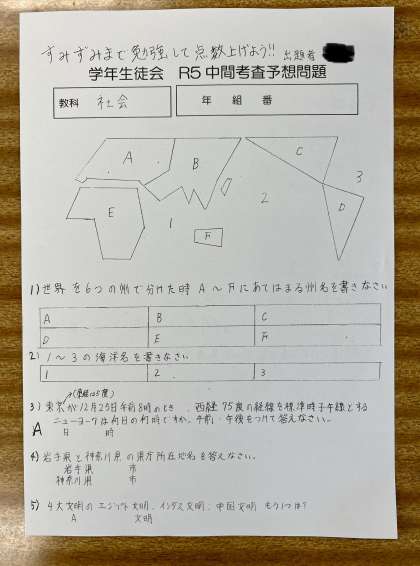 すみずみまで勉強して点数上げよう!! 出題者
学年生徒会 R5中間考査予想問題
教科 社会 年 組 番
A B C
3
D
2
E 1
F
1) 世界を6つの州で分けた時 A〜Fにあてはまる州名を書きなさい
A B C
D E F
2) 1〜3の海洋名を書きなさい
1 2 3
3) 東京が12月25日午前8時のとき、西経75度の経線を標準時子午線とする
ニューヨークは何日の何時ですか。午前・午後をつけて答えなさい。
A 日 時
4) 岩手県と神奈川県の県庁所在地名を答えなさい。
岩手県 市
神奈川県 市
5) 4大文明のエジプト文明、インダス文明、中国文明 もう1つは?
A 文明